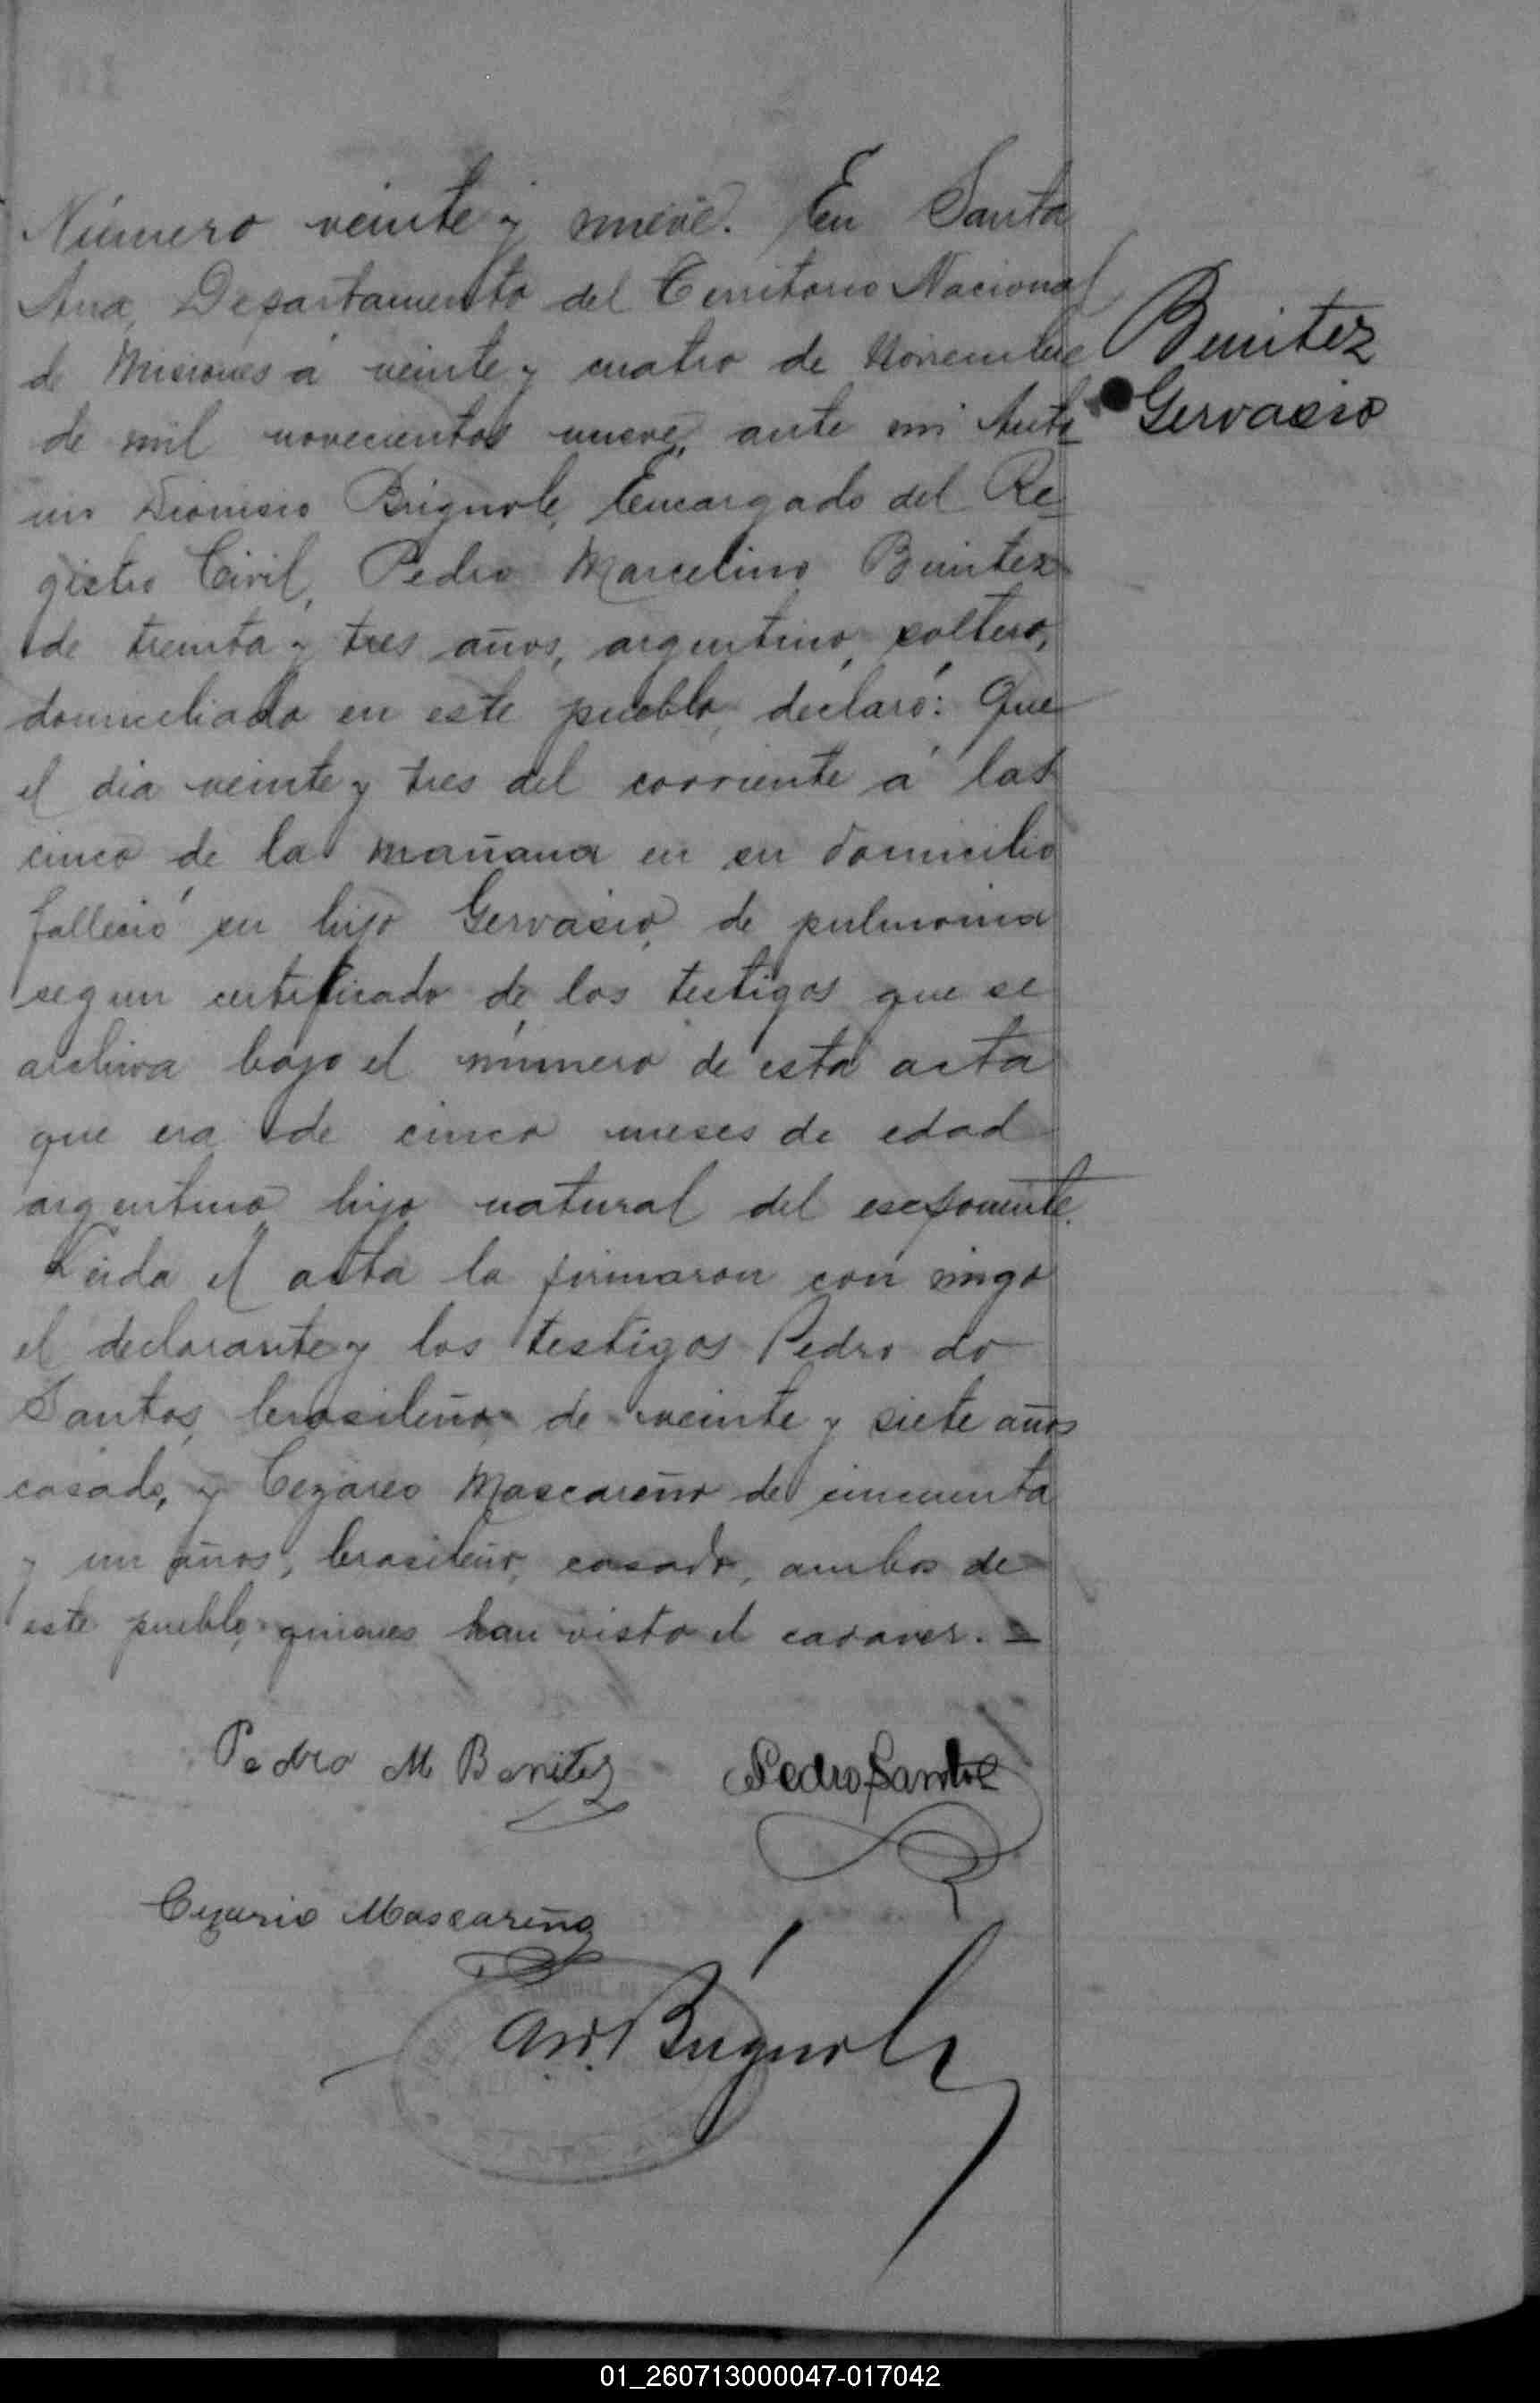 Número veinte y nueve. En Santa
Ana, Departamento del Territorio Nacional
de Misiones á veinte y cuatro de Noviembre
de mil novecientos nueve, ante mi Anto-
nio Dionisio Brignole, Encargado del Re-
gistro Civil, Pedro Marcelino Benitez
de treinta y tres años, argentino, soltero,
domiciliado en este pueblo, declaró: Que
el dia veinte y tres del corriente á las
cinco de la mañana en su domicilio
falleció su hijo Gervasio, de pulmonia
segun certificado de los testigos que se
archiva bajo el número de esta acta
que era de cinco meses de edad
argentino, hijo natural del esesponente.
Leida el acta la firmaron con migo
el declarante y los testigos Pedro do
Santos, brasileño, de veinte y siete años
casado, y Cezareo Mascareño de cincuenta
y un años, brasileño, casado, ambos de
este pueblo, quienes han visto el cadaver. -
Benitez
Gervasio
Pedro M Benitez
Pedro Santos
Cezario Mascareño
Ant. Brignole
01_260713000047-017042